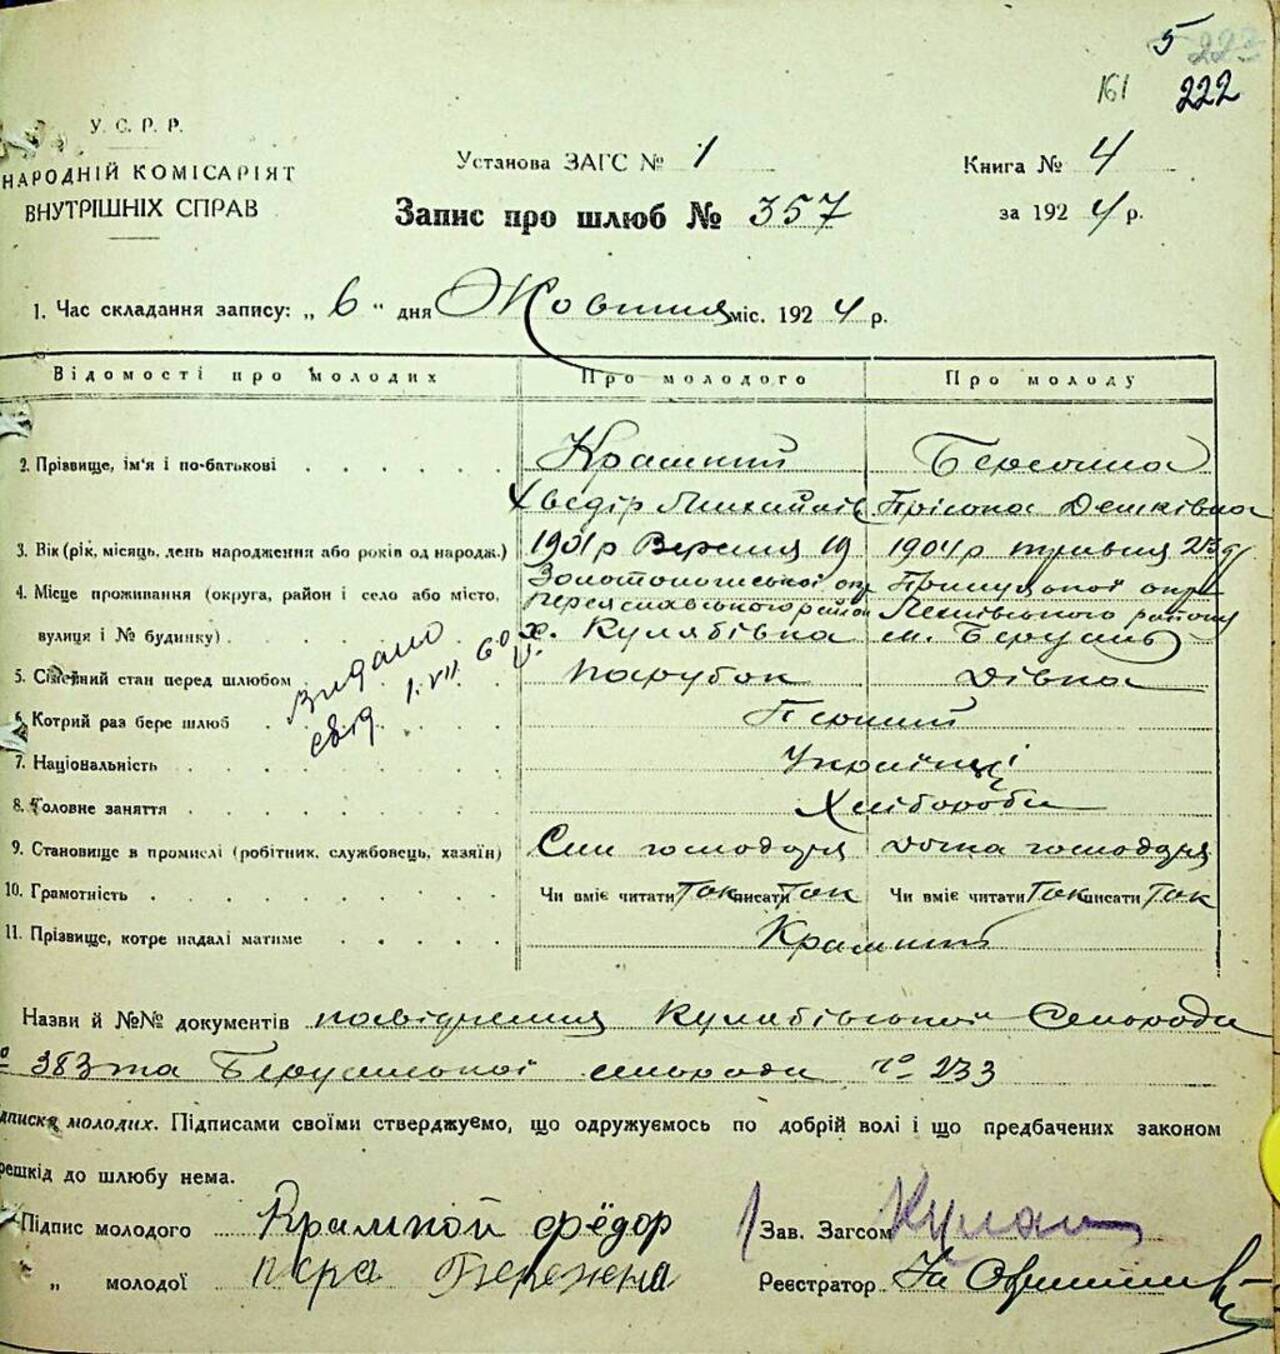 5 223
161 222
У. С. Р. Р.
НАРОДНІЙ КОМІСАРІЯТ
ВНУТРІШНІХ СПРАВ
Установа ЗАГС № 1
Книга № 4
Запис про шлюб № 357
за 1924 р.
1. Час складання запису: „ 6 “ дня Жовтня міс. 1924 р.
Відомості про молодих Про молодого Про молоду
2. Прізвище, ім'я і по-батькові Крамний
Хведір Михайлів Пріська Демківна
3. Вік (рік, місяць, день народження або років од народж.) 1901 р Вересня 19 1904 р травня 23
4. Місце проживання (округа, район і село або місто, Золотоноської окр
Переяславського район
вулиця і № будинку) х. Кулябівка
5. Сімейний стан перед шлюбом парубок дівка
видано
свід. 1.VII.60
6. Котрий раз бере шлюб Перший
7. Національність Українці
8. Головне заняття Хлібороби
9. Становище в промислі (робітник, службовець, хазяїн) Син господаря Дочка господаря
10. Грамотність Чи вміє читати Так писати Так Чи вміє читати Так писати Так
11. Прізвище, котре надалі матиме Крамний
Назви й №№ документів посвідчення Кулябівської Сільради
№ 383 та сільради № 233
дписка молодих. Підписами своїми стверджуємо, що одружуємось по добрій волі і що предбачених законом
решкід до шлюбу нема.
Підпис молодого Крамной фёдор Зав. Загсом
„ молодої Реєстратор